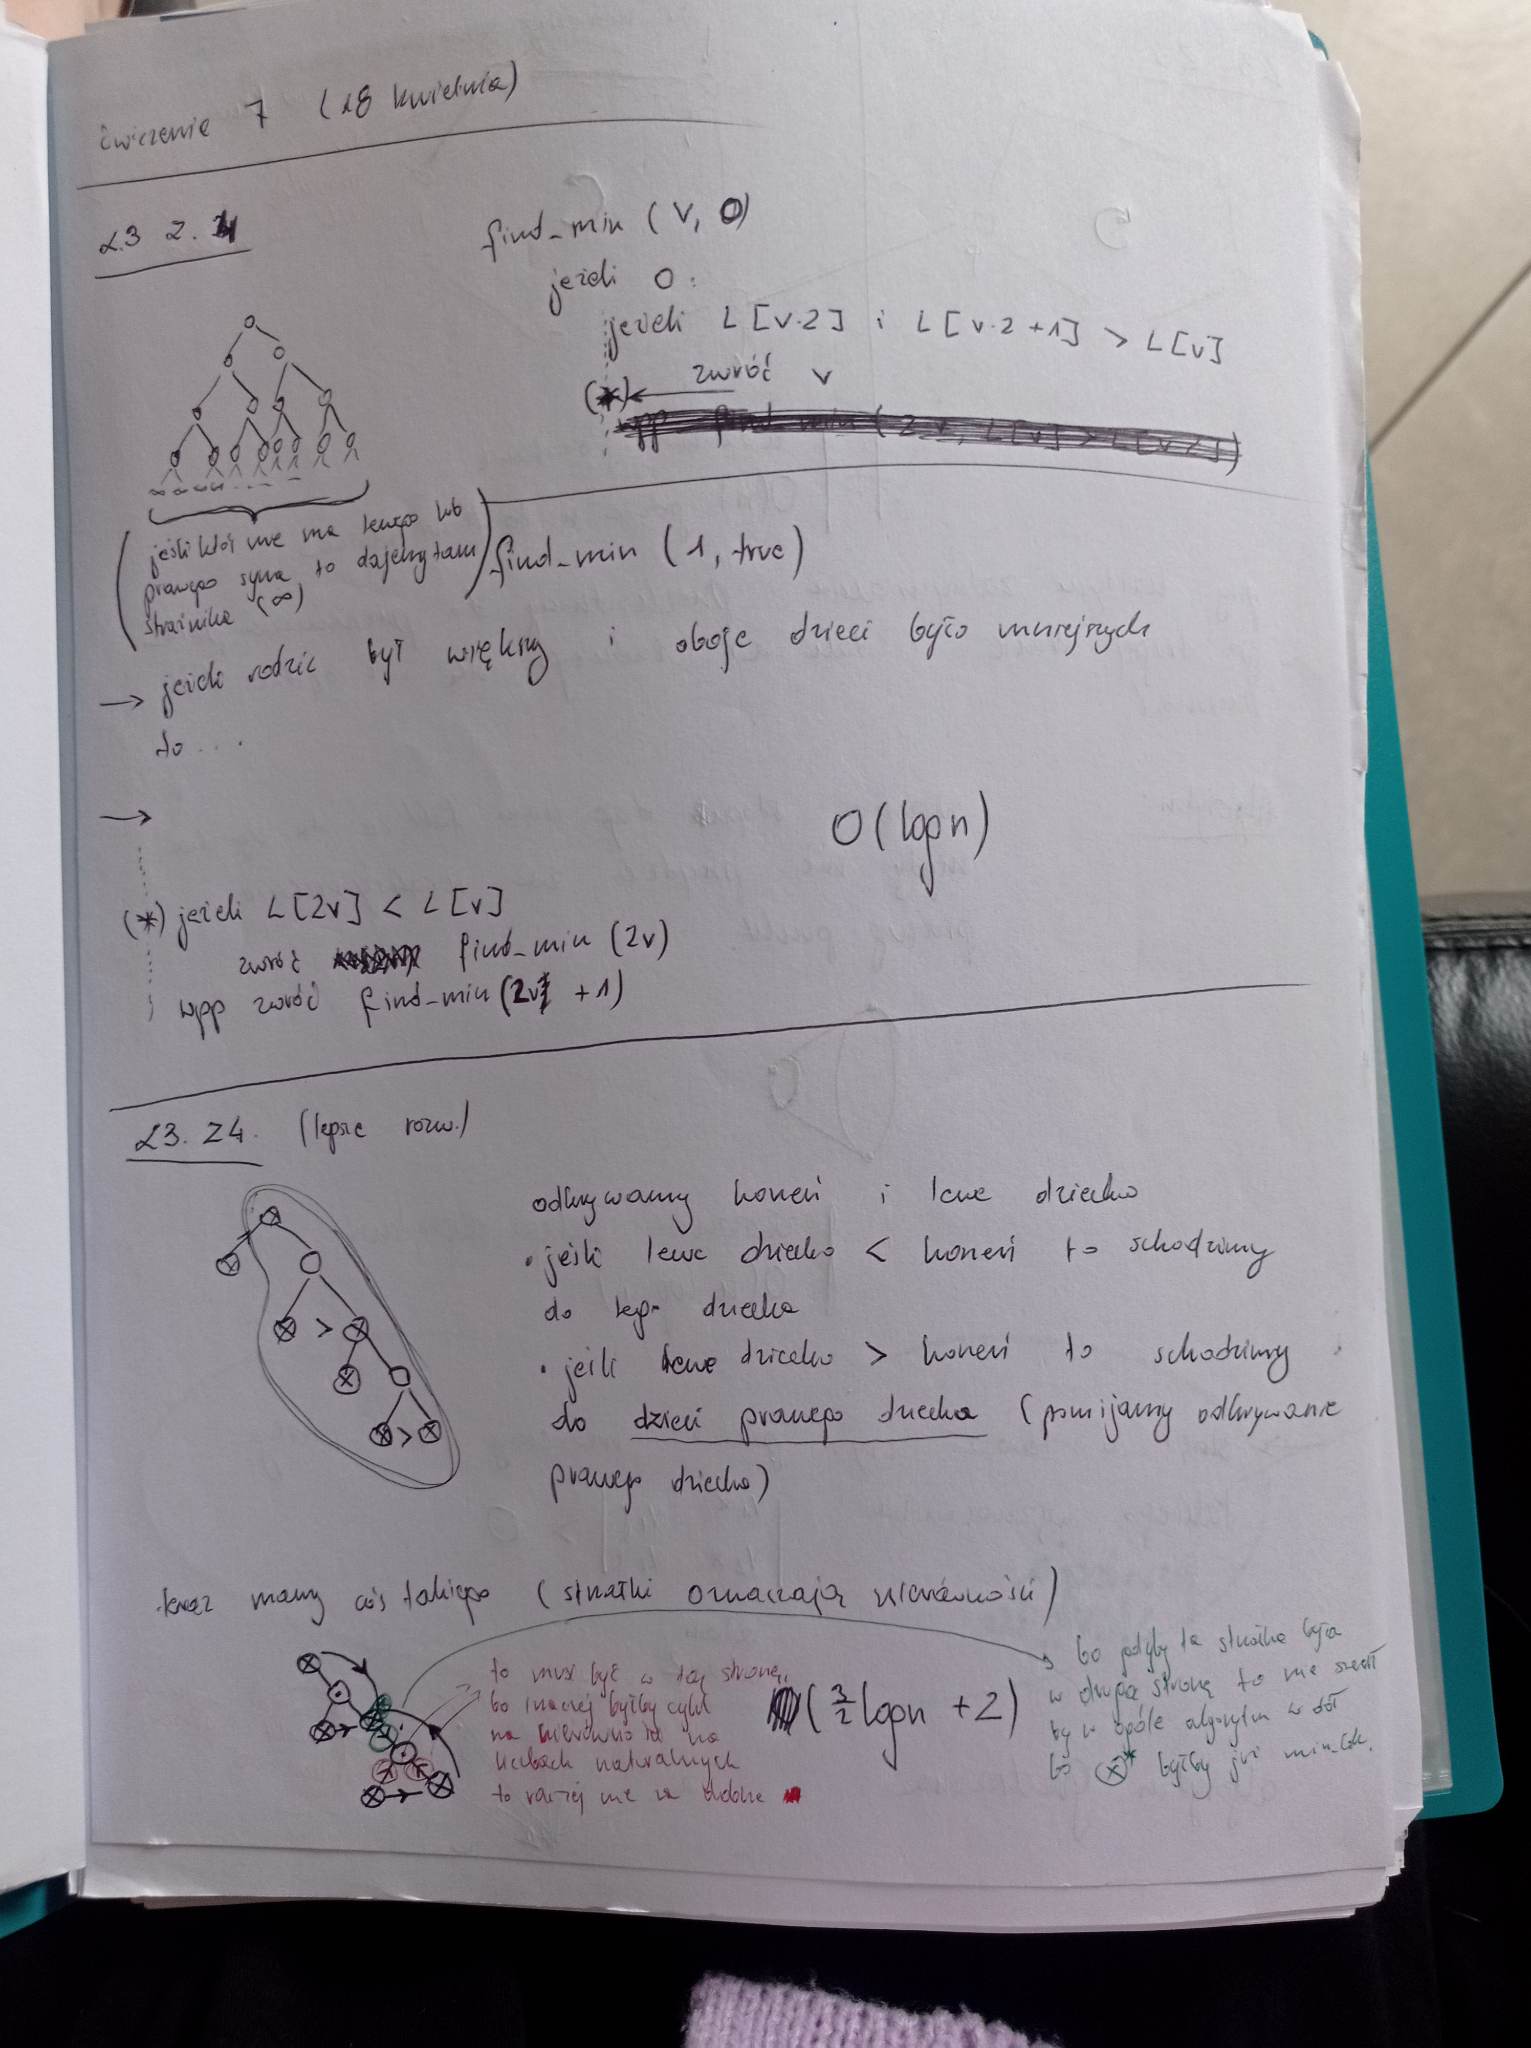 ćwiczenie 7 (18 kwietnia)
L3 Z.
find_min (V, O)
jeżeli O:
jeżeli L[v·2] i L[v·2+1] > L[v]
zwróć v
(*)
(jeśli ktoś nie ma lewego lub
prawego syna, to dajemy tam
strażnika (∞))
find_min (1, true)
→ jeżeli rodzic był większy i oboje dzieci było mniejszych
to ....
→
O(logn)
(*) jeżeli L[2v] < L[v]
zwróć find_min (2v)
wpp zwróć find_min (2v + 1)
L3. Z4. (lepsze rozw.)
odkrywamy korzeń i lewe dziecko
• jeśli lewe dziecko < korzeń to schodzimy
do tego dziecka
• jeśli lewe dziecko > korzeń to schodzimy
do dzieci prawego dziecka (pomijamy odkrywanie
prawego dziecka)
teraz mamy coś takiego (strzałki oznaczają nierówności)
to musi być w tej stronę,
bo inaczej byłby cykl
na nierówności na
liczbach naturalnych
to raczej nie za dobrze
(3/2 logn + 2)
bo gdyby ta strzałka była
w drugą stronę to nie szedł
by w ogóle algorytm w dół
bo ⊗* byłby już min. lok.